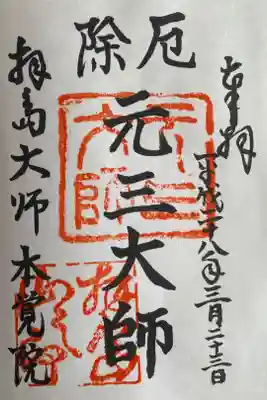 奉拝
平成二十八年三月二十三日
厄除
元三大師
拝島大師 本覚院